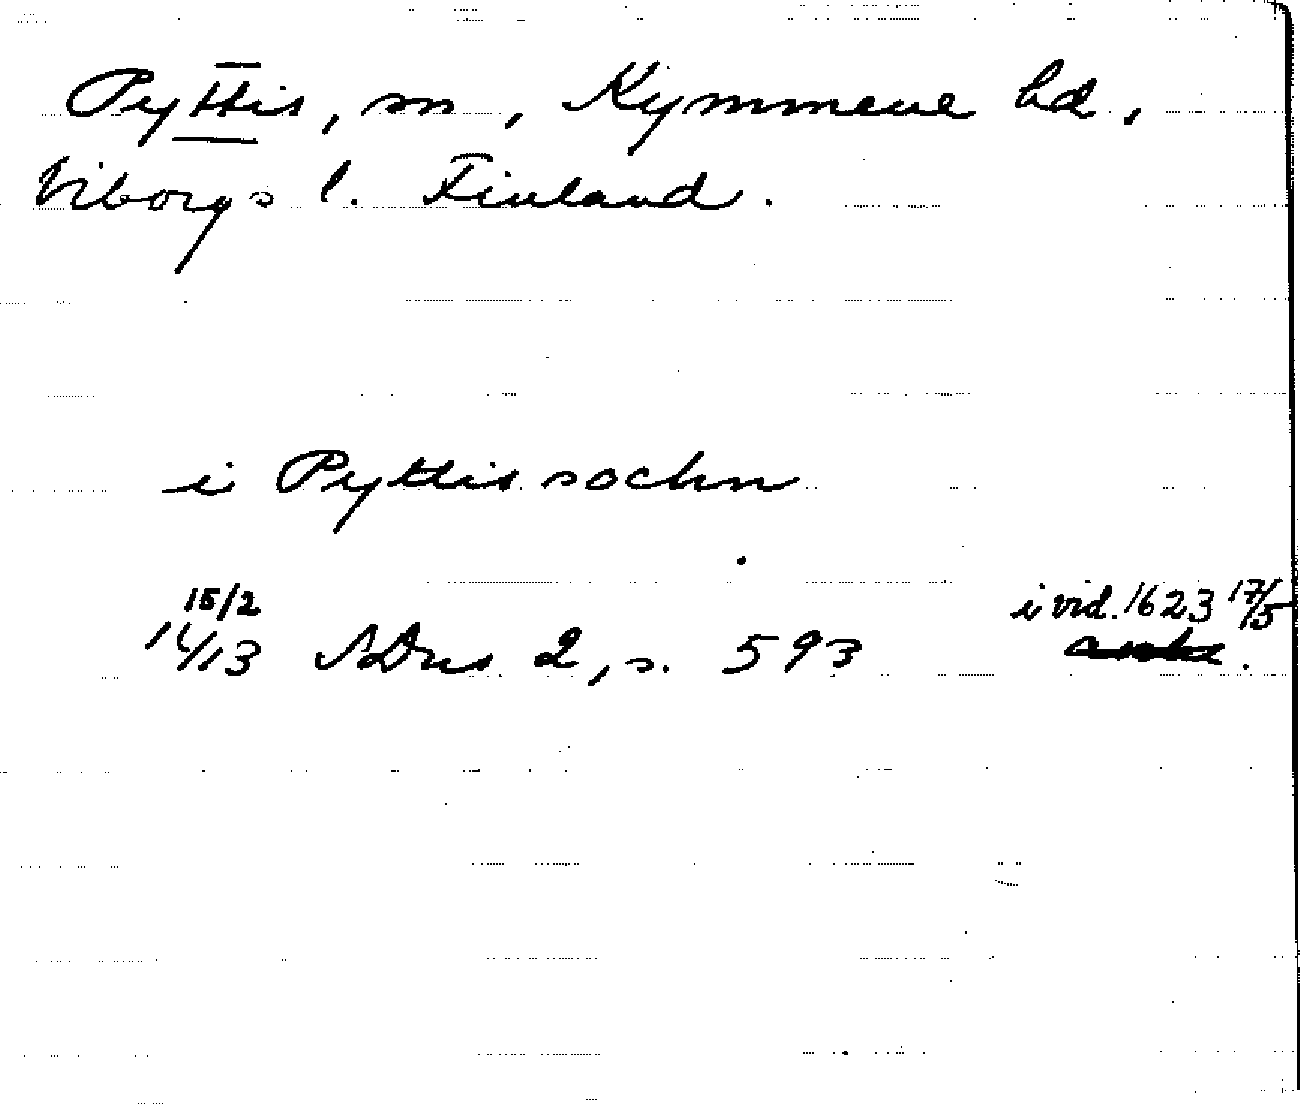 Pyttis, sn, Kymmene hd,
Viborgs l. Finland.
i Pyttis sochn
15/2
1413 SDns 2, s. 593 i vid. 1623 17/5